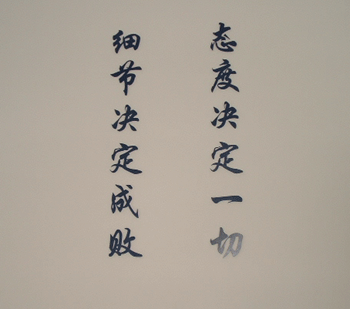 态度决定一切
细节决定成败